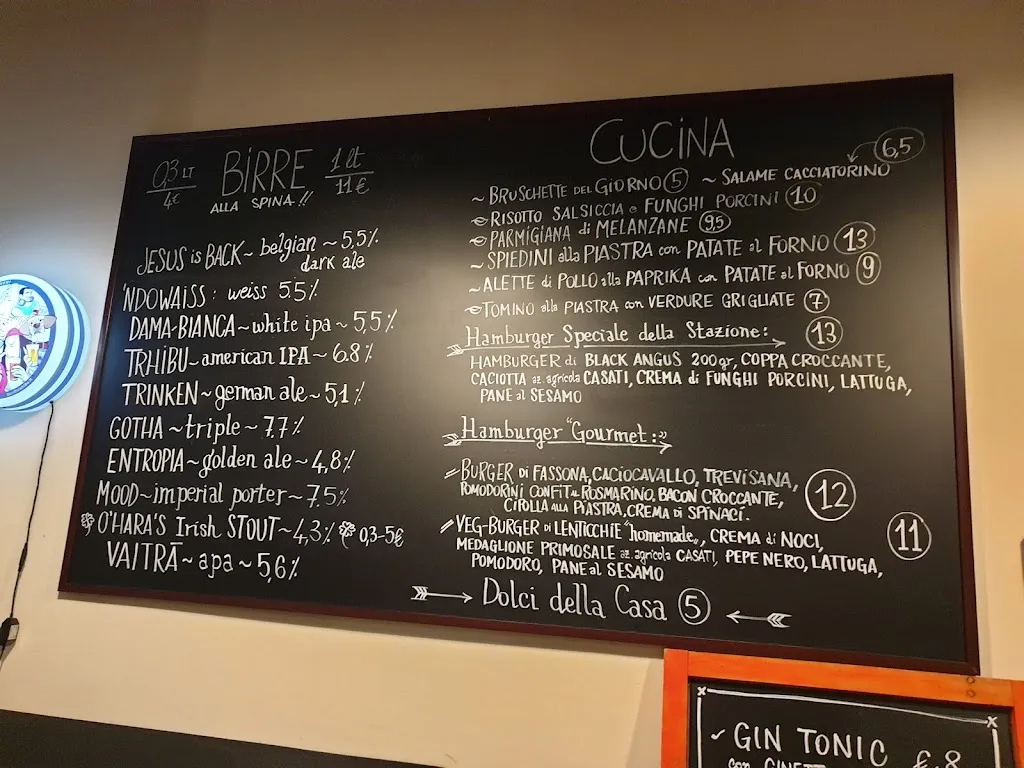 0,3 LT
4€
BIRRE
ALLA SPINA!!
1 lt
11€
JESUS is BACK ~ belgian ~ 5,5%
dark ale
'NDOWAISS: weiss 5.5%
DAMA-BIANCA ~ white ipa ~ 5,5%
TRHIBU ~ american IPA ~ 6.8%
TRINKEN ~ german ale ~ 5,1%
GOTHA ~ triple ~ 7.7%
ENTROPIA ~ golden ale ~ 4,8%
MOOD ~ imperial porter ~ 7.5%
O'HARA'S Irish STOUT ~ 4,3% 0,3-5€
VAITRĀ ~ apa ~ 5,6%
CUCINA
~ BRUSCHETTE DEL GIORNO 5 ~ SALAME CACCIATORINO 6,5
~ RISOTTO SALSICCIA e FUNGHI PORCINI 10
~ PARMIGIANA di MELANZANE 9,5
~ SPIEDINI alla PIASTRA con PATATE al FORNO 13
~ ALETTE di POLLO alla PAPRIKA con PATATE al FORNO 9
~ TOMINO alla PIASTRA con VERDURE GRIGLIATE 7
Hamburger Speciale della Stazione: 13
HAMBURGER di BLACK ANGUS 200gr, COPPA CROCCANTE,
CACIOTTA az. agricola CASATI, CREMA di FUNGHI PORCINI, LATTUGA,
PANE al SESAMO
Hamburger "Gourmet:"
BURGER DI FASSONA, CACIOCAVALLO, TREVISANA,
POMODORINI CONFIT AL ROSMARINO, BACON CROCCANTE, 12
CIPOLLA ALLA PIASTRA, CREMA DI SPINACI.
VEG-BURGER DI LENTICCHIE "homemade", CREMA di NOCI,
MEDAGLIONE PRIMOSALE az. agricola CASATI, PEPE NERO, LATTUGA, 11
POMODORO, PANE al SESAMO
Dolci della Casa 5
GIN TONIC €.8
con